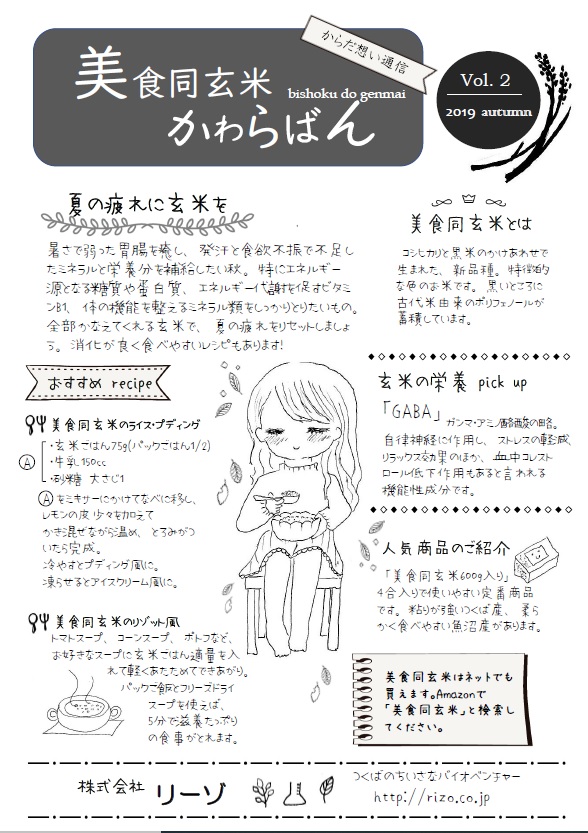 からだ想い通信
美食同玄米
bishoku do genmai
かわらばん
Vol. 2
2019 autumn
夏の疲れに玄米を
暑さで弱った胃腸を癒し、発汗と食欲不振で不足し
たミネラルと栄養分を補給したい秋。特にエネルギー
源となる糖質や蛋白質、エネルギー代謝を促すビタミ
ンB1、体の機能を整えるミネラル類をしっかりとりたいもの。
全部かなえてくれる玄米で、夏の疲れをリセットしましょ
う。消化が良く食べやすいレシピもあります!
おすすめ recipe
美食同玄米のライス・プディング
A
・玄米ごはん75g(パックごはん1/2)
・牛乳150cc
・砂糖 大さじ1
Aをミキサーにかけてなべに移し、
レモンの皮少々を加えて
かき混ぜながら温め、とろみがつ
いたら完成。
冷やすとプディング風に。
凍らせるとアイスクリーム風に。
美食同玄米のリゾット風
トマトスープ、コーンスープ、ポトフなど、
お好きなスープに玄米ごはん適量を入
れて軽くあたためてできあがり。
パックご飯とフリーズドライ
スープを使えば、
5分で滋養たっぷり
の食事がとれます。
美食同玄米とは
コシヒカリと黒米のかけあわせで
生まれた、新品種。特徴的
な色のお米です。黒いところに
古代米由来のポリフェノールが
蓄積しています。
玄米の栄養 pick up
「GABA」ガンマ・アミノ酪酸の略。
自律神経に作用し、ストレスの軽減、
リラックス効果のほか、血中コレスト
ロール低下作用もあると言われる
機能性成分です。
人気商品のご紹介
「美食同玄米600g入り」
4合入りで使いやすい定番商品
です。粘りが強いつくば産、柔ら
かく食べやすい魚沼産があります。
美食同玄米はネットでも
買えます。Amazonで
「美食同玄米」と検索し
てください。
株式会社 リーゾ
つくばのちいさなバイオベンチャー
http://rizo.co.jp